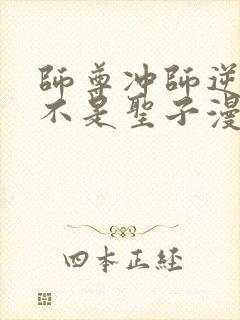 師尊冲師逆
不是聖子漫
四本正経